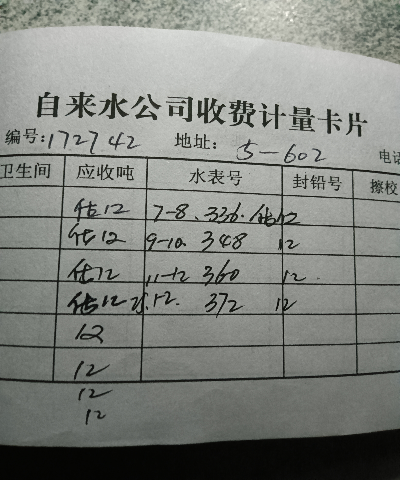 自来水公司收费计量卡片
编号:172742 地址: 5-602 电话
卫生间 应收吨 水表号 封铅号 擦校
估12 7-8、336. 估12
估12 9-10 348 12
估12 11-12 360 12
估12 12. 372 12
12
12
12
12